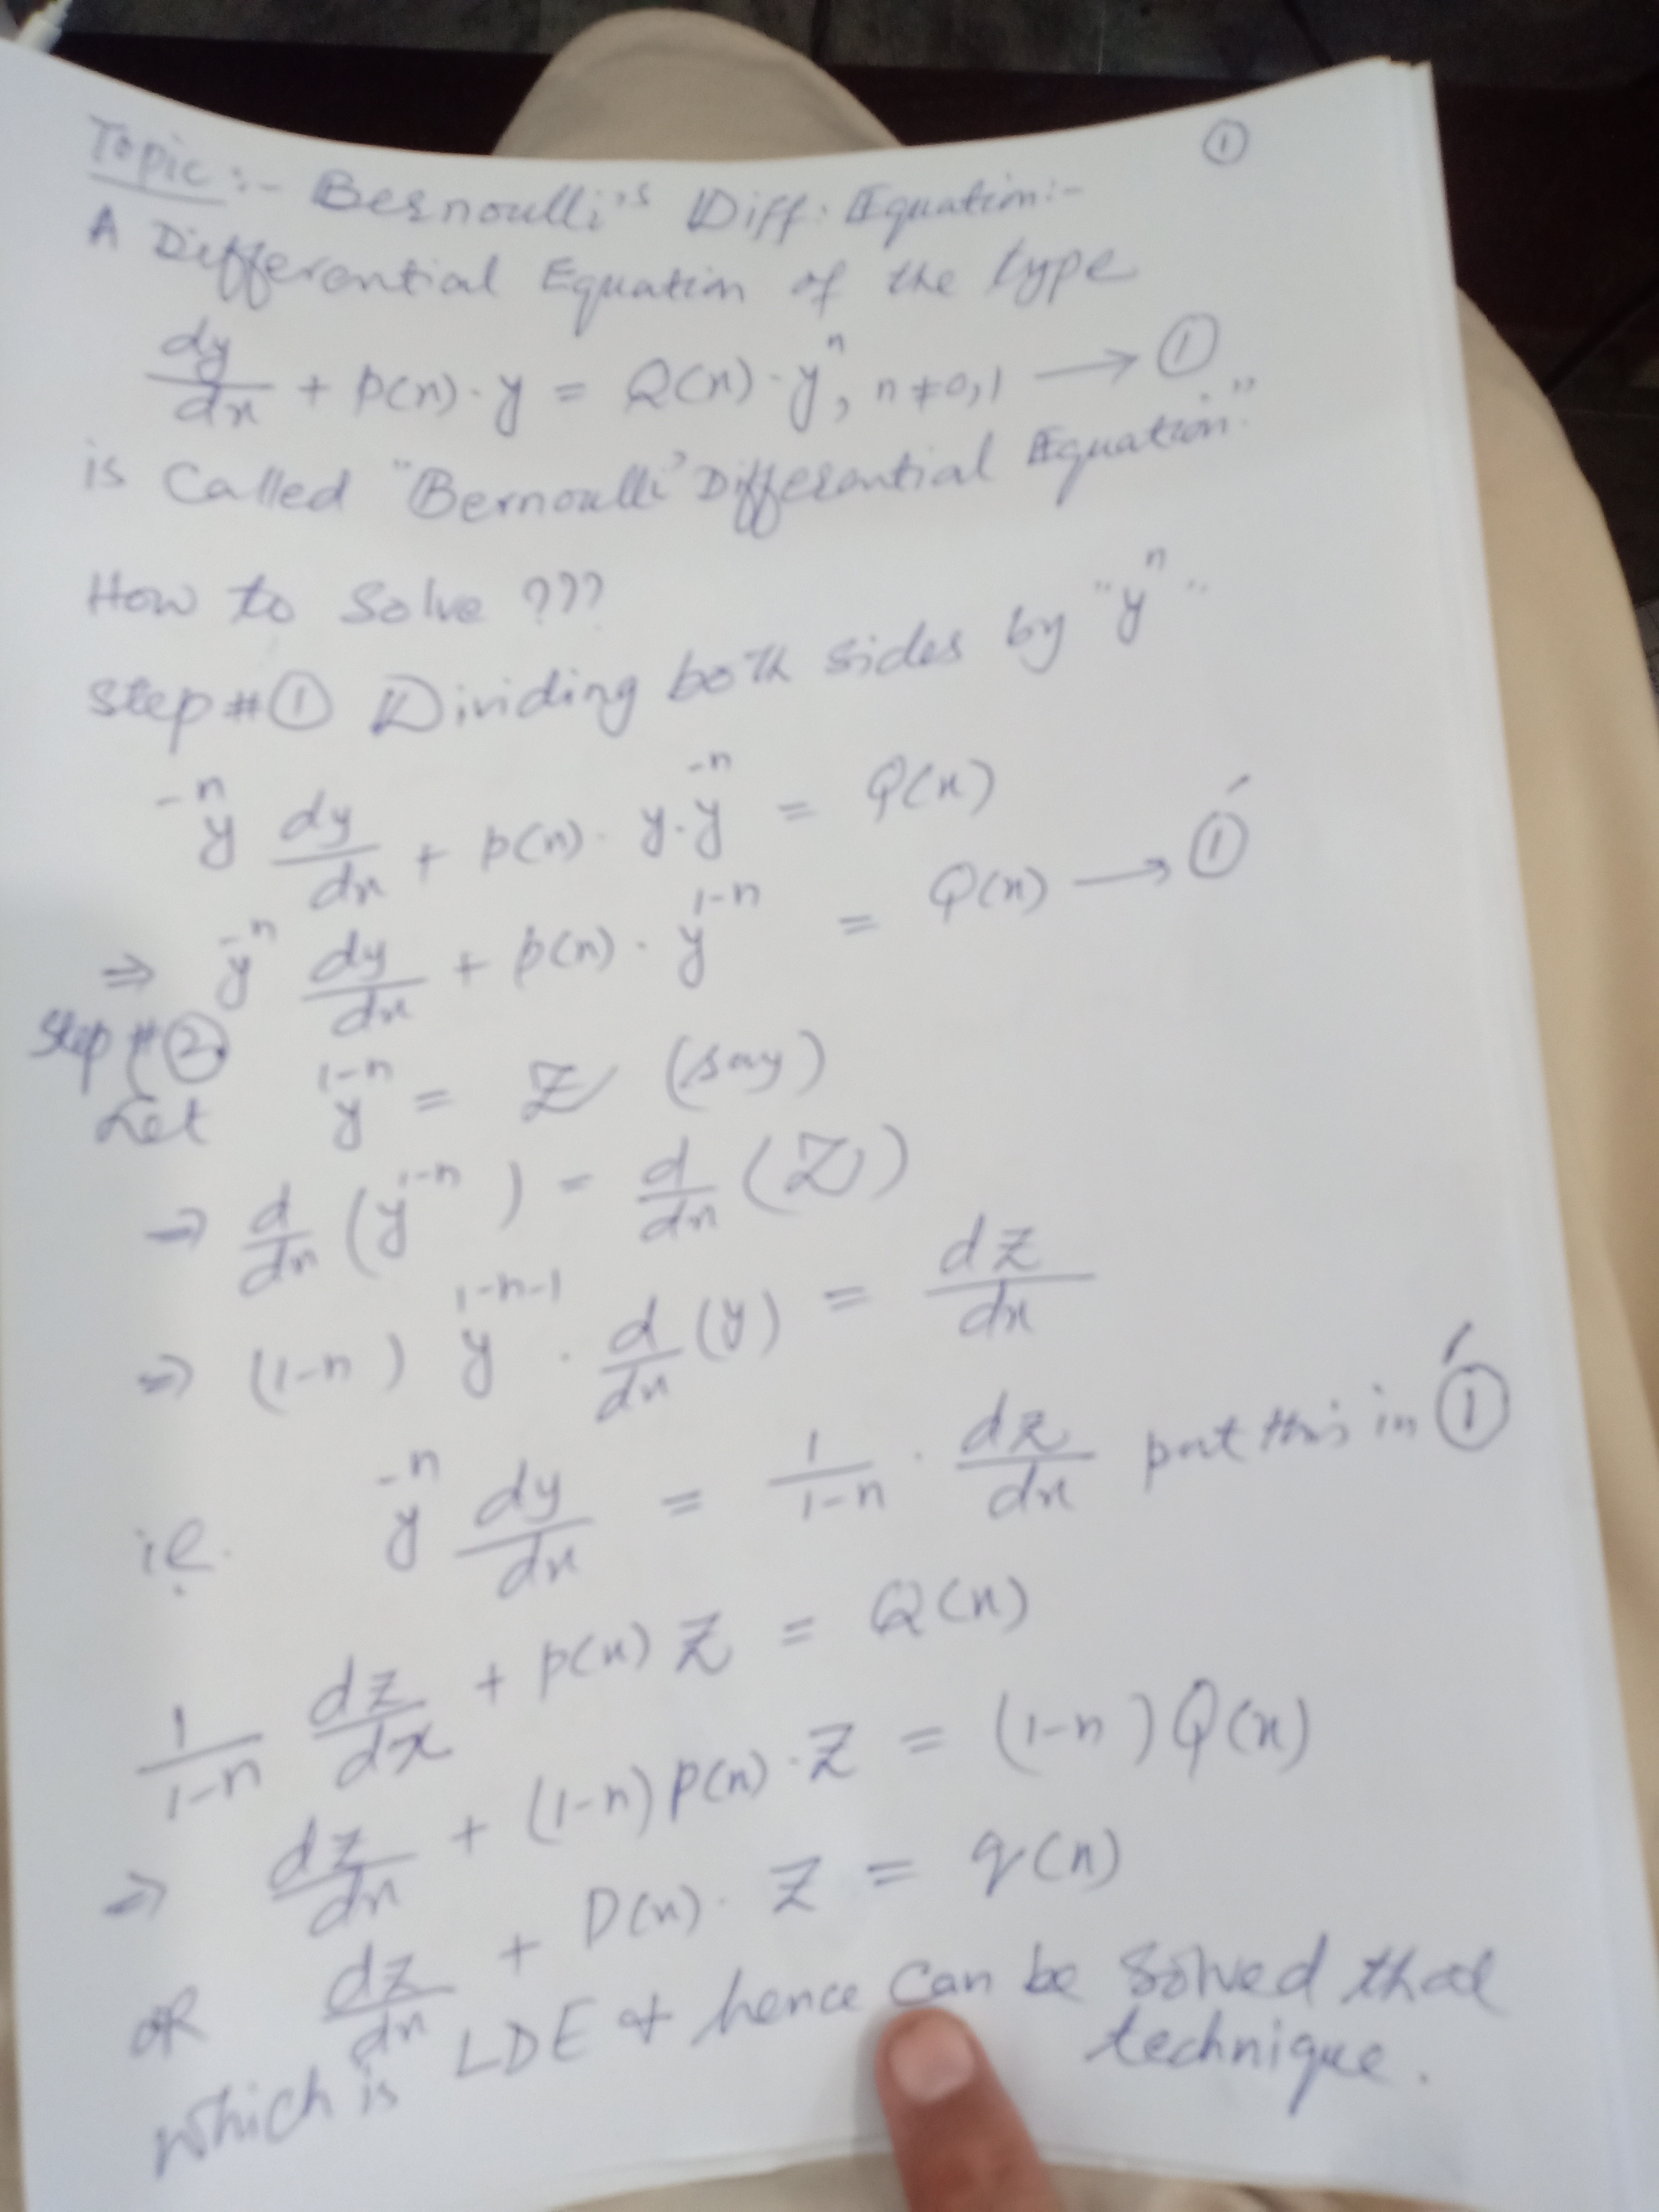 ①
Topic :- Bernoulli's Diff. Equation:-
A Differential Equation of the type
dy/dx + p(x)·y = Q(x)·y^n, n≠0,1 → ①
is Called "Bernoulli' Differential Equation"
How to Solve ???
Step # ① Dividing both sides by "y^n"
y^-n dy/dx + p(x)· y·y^-n = Q(x)
⇒ y^-n dy/dx + p(x)· y^1-n = Q(x) → ①′
Step # ②
Let y^1-n = Z (say)
⇒ d/dx (y^1-n) = d/dx (Z)
⇒ (1-n) y^1-n-1 · d/dx (y) = dz/dx
i.e. y^-n dy/dx = 1/1-n · dz/dx put this in ①′
1/1-n dz/dx + p(x) Z = Q(x)
⇒ dz/dx + (1-n) p(x)·Z = (1-n) Q(x)
OR dz/dx + P(x)· Z = q(x)
which is LDE & hence Can be Solved that
technique.